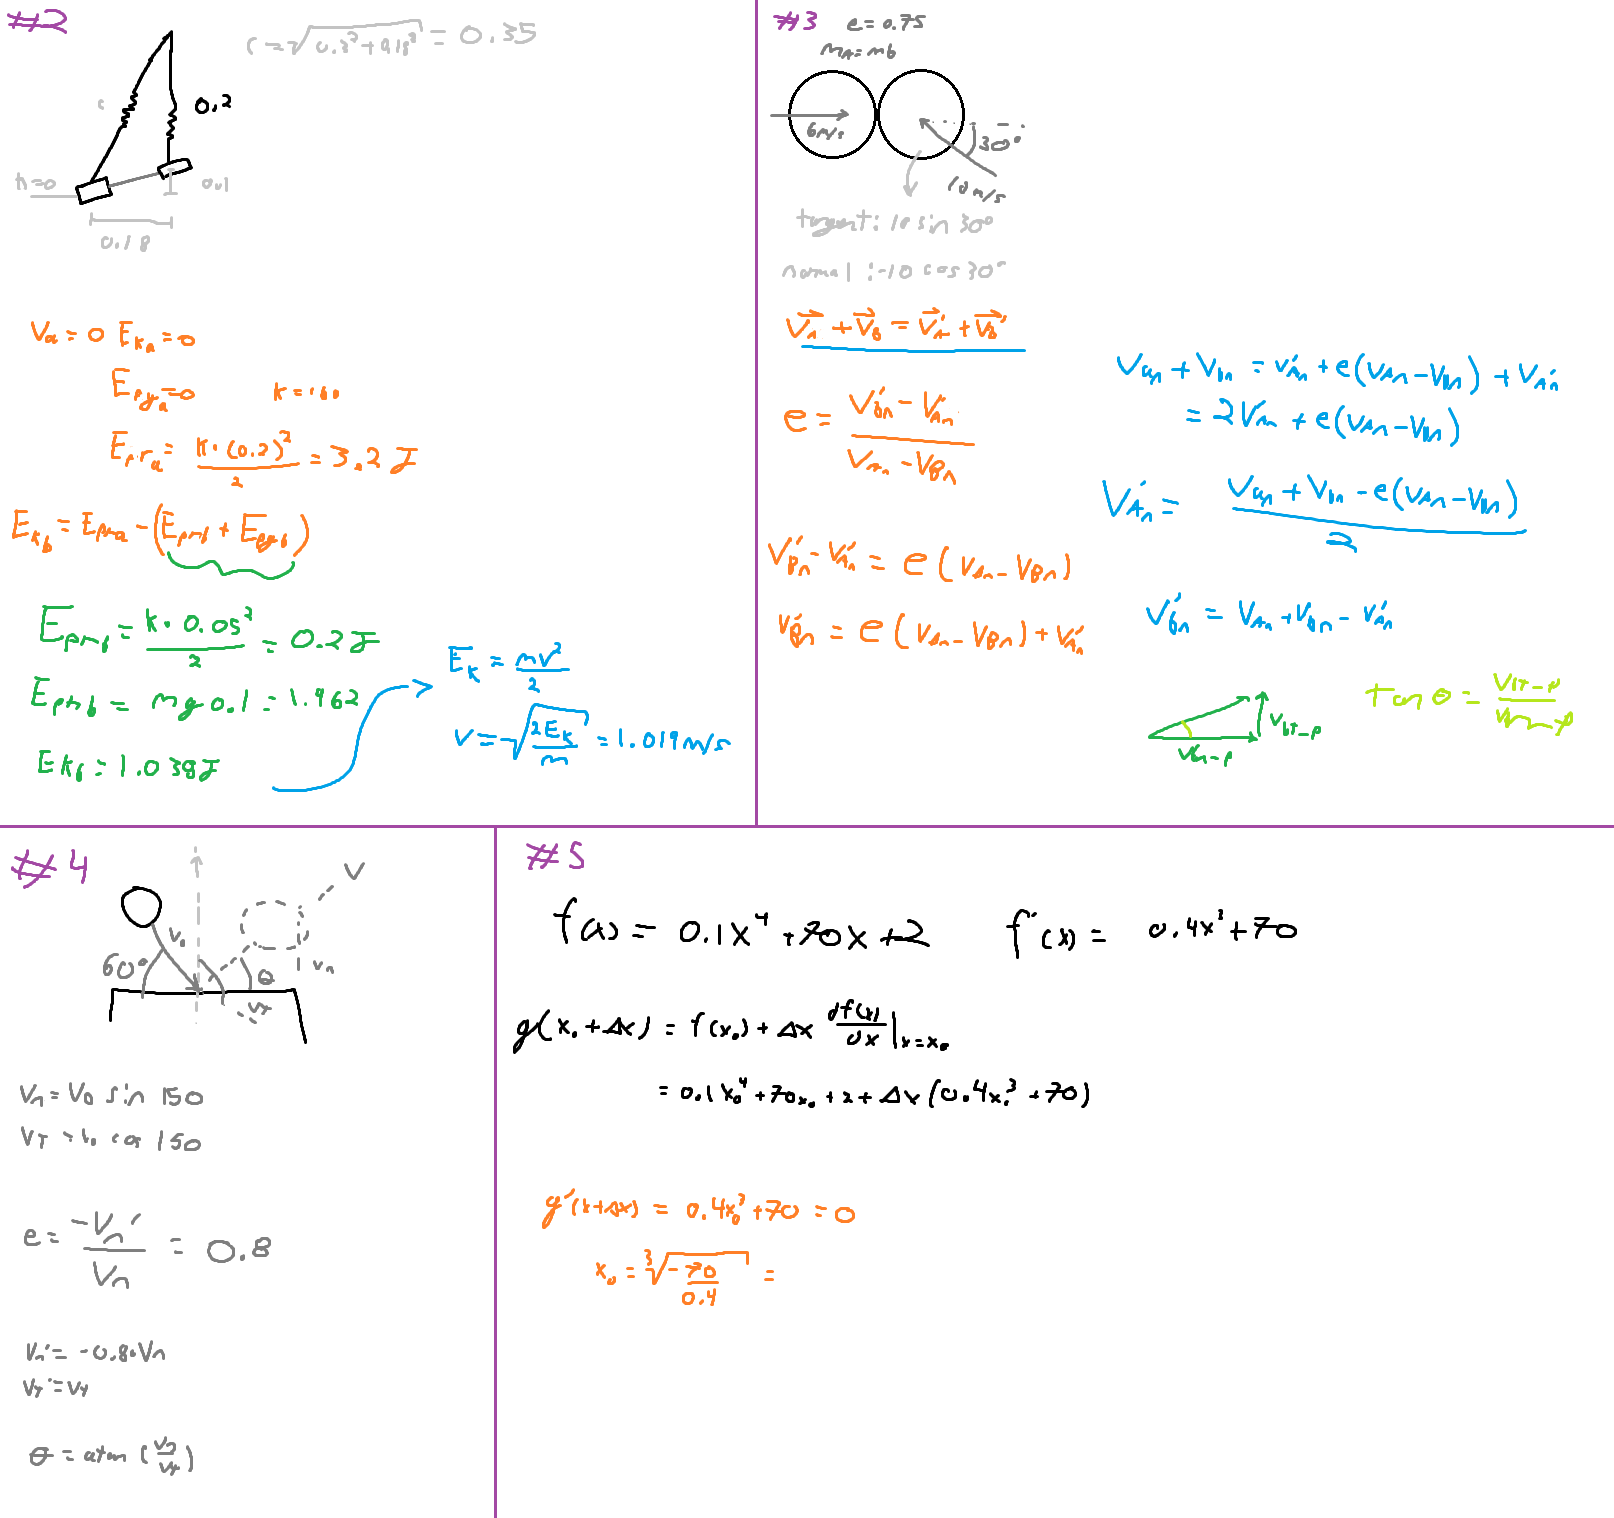 #2
c = √(0.3² + 0.18²) = 0.35
c
0.2
h=0
0.1
0.18
Va = 0 Eka = 0
Epga = 0 k = 160
Epra = k · (0.2)² / 2 = 3.2 J
Ekb = Epra - (Eprb + Epgb)
Eprb = k · 0.05² / 2 = 0.2 J
Ephb = mg 0.1 = 1.962
Ekb = 1.038 J
Ek = mv² / 2
v = √(2Ek / m) = 1.019 m/s
#3 e = 0.75
mA = mb
6 m/s
30°
10 m/s
tangent: 10 sin 30°
normal: -10 cos 30°
VA + VB = VA' + VB'
e = VBn' - VAn' / VAn - VBn
VBn' - VAn' = e (VAn - VBn)
VBn' = e (VAn - VBn) + VAn'
Van + Vbn = VAn' + e(VAn - VBn) + VAn'
= 2VAn + e(VAn - VBn)
VAn' = Van + Vbn - e(VAn - VBn) / 2
VBn' = VAn + VBn - VAn'
Vbn-p
VbT-p
Tan θ = VbT-p / Vbn-p
#4
V
V0
60°
θ
Vn
VT
Vn = V0 sin 150
VT = V0 cos 150
e = -Vn' / Vn = 0.8
Vn' = -0.8 · Vn
VT' = VT
θ = atan (Vn / VT)
#5
f(x) = 0.1x⁴ + 70x + 2 f'(x) = 0.4x³ + 70
g(x0 + Δx) = f(x0) + Δx df(x)/dx |x=x0
= 0.1x0⁴ + 70x0 + 2 + Δx (0.4x0³ + 70)
g'(x+Δx) = 0.4x0³ + 70 = 0
x0 = ³√(-70 / 0.4) =